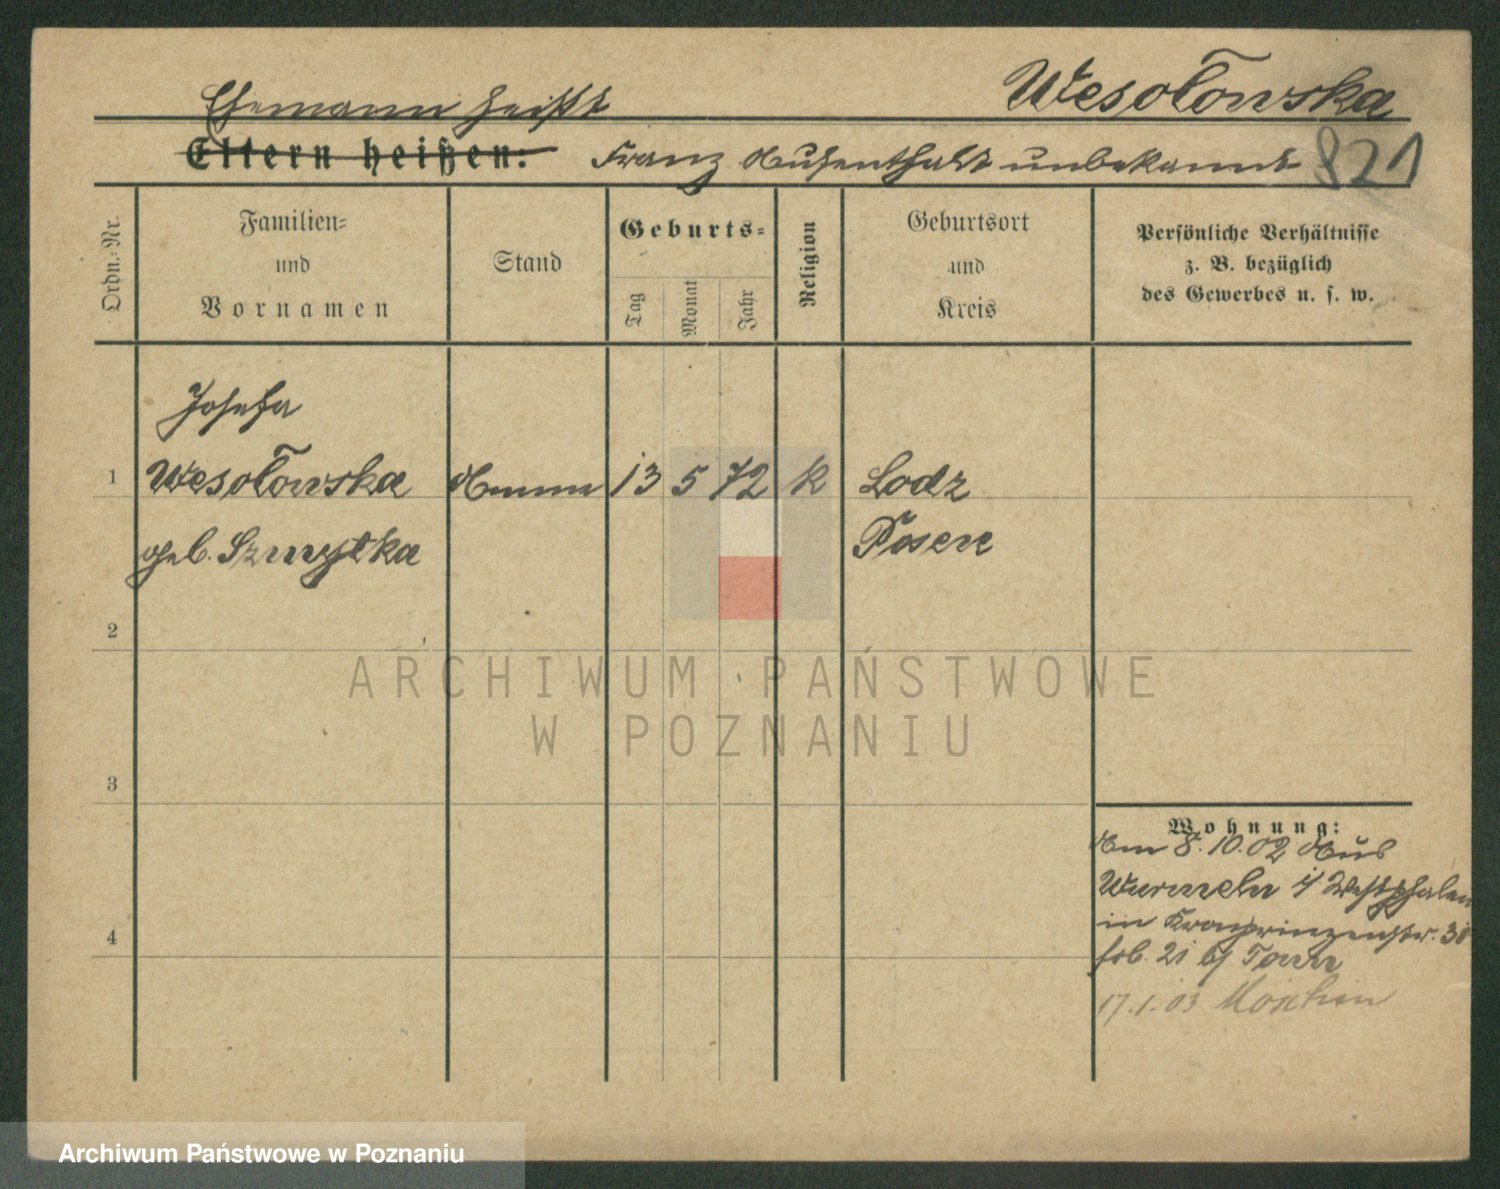 Wesołowska
Ehemann heißt
Eltern heißen: Franz Aufenthalt unbekannt 821
Ordn.-Nr.
Familien-
und
Vornamen
Stand
Geburts-
Tag
Monat
Jahr
Religion
Geburtsort
und
Kreis
Persönliche Verhältnisse
z. B. bezüglich
des Gewerbes u. s. w.
Josefa
1 Wesołowska Amme 13 5 72 k Lodz
geb. Szmytka Posen
2
3
4
Wohnung:
Am 8.10.02 Aus
Wurmeln i/ Westphalen
in Kronprinzenstr.
21 b/
17.1.03 Moschin
ARCHIWUM PAŃSTWOWE
W POZNANIU
Archiwum Państwowe w Poznaniu